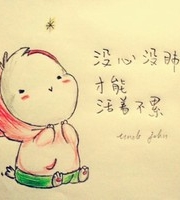 没心没肺
才能
活着不累
uncle john